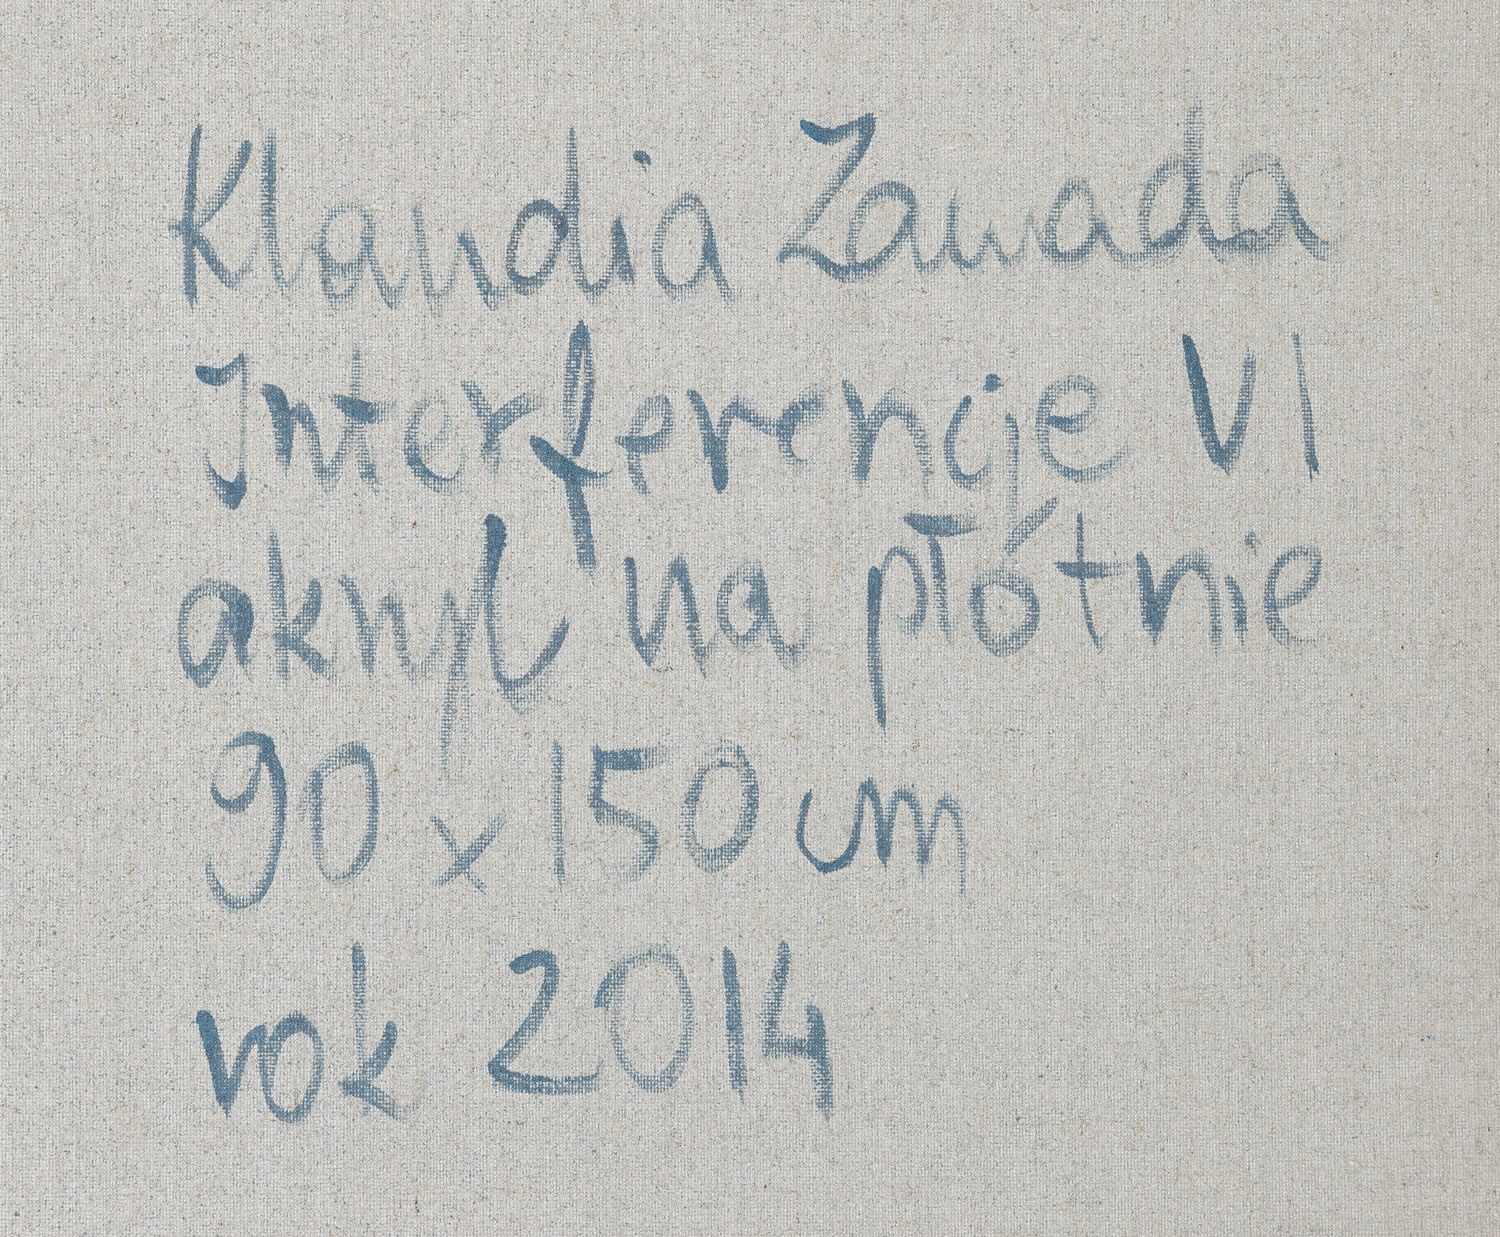 Klaudia Zawada
Interferencje VI
akryl na płótnie
90 x 150 cm
rok 2014